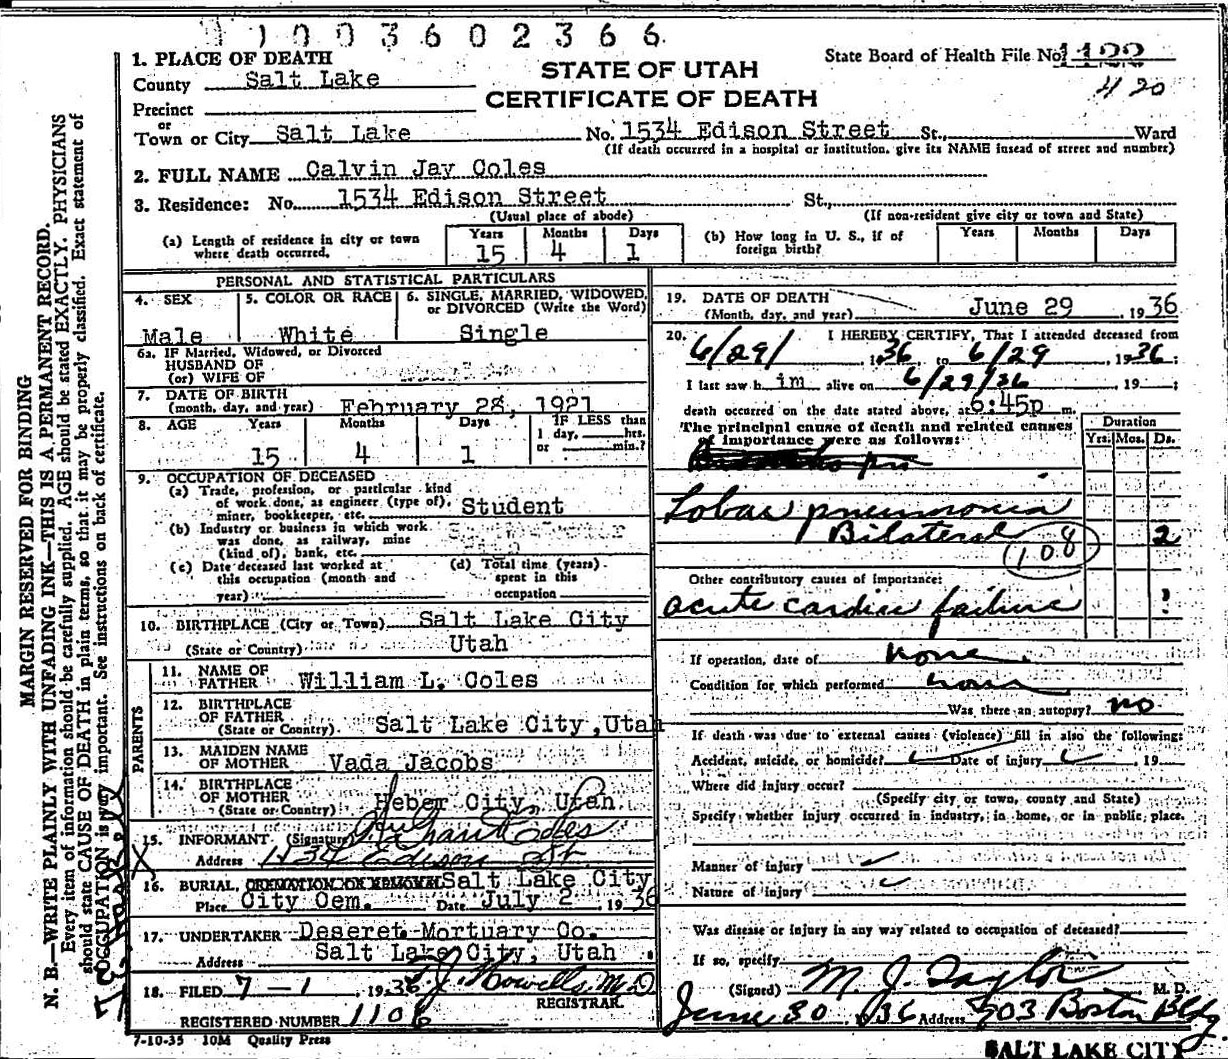 1003602366
1. PLACE OF DEATH
County Salt Lake
STATE OF UTAH
CERTIFICATE OF DEATH
State Board of Health File No.
420
Precinct
or
Town or City Salt Lake No. 1534 Edison Street St., Ward
(If death occurred in a hospital or institution, give its NAME insead of street and number)
2. FULL NAME Calvin Jay Coles
3. Residence: No. 1534 Edison Street St.,
(Usual place of abode) (If non-resident give city or town and State)
(a) Length of residence in city or town where death occurred. Years 15 Months 4 Days 1
(b) How long in U. S., if of foreign birth? Years Months Days
PERSONAL AND STATISTICAL PARTICULARS
4. SEX 5. COLOR OR RACE 6. SINGLE, MARRIED, WIDOWED, or DIVORCED (Write the Word)
Male White Single
6a. IF Married, Widowed, or Divorced
HUSBAND OF
(or) WIFE OF
7. DATE OF BIRTH
(month, day, and year) February 28, 1921
8. AGE Years Months Days IF LESS than
1 day, hrs.
or min.?
15 4 1
9. OCCUPATION OF DECEASED
(a) Trade, profession, or particular kind
of work done, as engineer (type of),
miner, bookkeeper, etc. Student
(b) Industry or business in which work
was done, as railway, mine
(kind of), bank, etc.
(c) Date deceased last worked at
this occupation (month and
year)
(d) Total time (years)
spent in this
occupation
10. BIRTHPLACE (City or Town) Salt Lake City
(State or Country) Utah
PARENTS
11. NAME OF
FATHER William L. Coles
12. BIRTHPLACE
OF FATHER
(State or Country). Salt Lake City, Utah
13. MAIDEN NAME
OF MOTHER Vada Jacobs
14. BIRTHPLACE
OF MOTHER
(State or Country) Heber City, Utah.
15. INFORMANT (Signature) Coles
Address 1434 Edison St.
16. BURIAL, CREMATION OR REMOVAL Salt Lake City
Place City Cem. Date July 2, 1936
17. UNDERTAKER Deseret Mortuary Co.
Address Salt Lake City, Utah
18. FILED 7-1, 1936 T. J. Howells M.D.
REGISTRAR.
REGISTERED NUMBER 1106
7-10-35 10M Quality Press
19. DATE OF DEATH
(Month, day, and year) June 29, 1936
20. I HEREBY CERTIFY, That I attended deceased from
6/29/ 1936 to 6/29, 1936;
I last saw him alive on 6/29/36 19 ;
death occurred on the date stated above, at 6:45p m.
The principal cause of death and related causes
of importance were as follows:
Duration
Yrs. Mos. Ds.
Lobar pneumonia
Bilateral 2
108
Other contributory causes of importance:
acute cardiac failure !
If operation, date of none
Condition for which performed none
Was there an autopsy? no
If death was due to external causes (violence) fill in also the following:
Accident, suicide, or homicide? Date of injury , 19
Where did injury occur?
(Specify city or town, county and State)
Specify whether injury occurred in industry, in home, or in public place.
Manner of injury
Nature of injury
Was disease or injury in any way related to occupation of deceased?
If so, specify
(Signed) M. J. Taylor M. D.
June 30, 1936 Address 703 Boston Bldg
SALT LAKE CITY
MARGIN RESERVED FOR BINDING
N. B.—WRITE PLAINLY WITH UNFADING INK—THIS IS A PERMANENT RECORD.
Every item of information should be carefully supplied. AGE should be stated EXACTLY. PHYSICIANS
should state CAUSE OF DEATH in plain terms, so that it may be properly classified. Exact statement of
OCCUPATION is very important. See instructions on back of certificate.